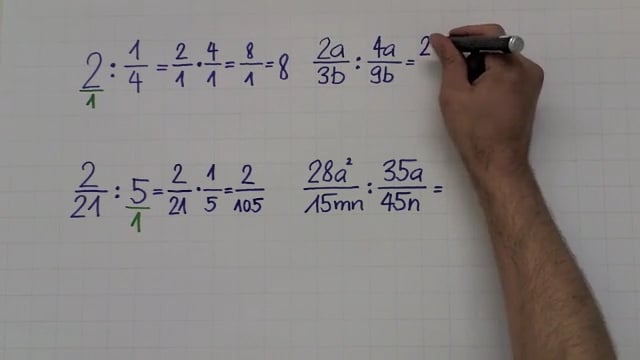 2/1 : 1/4 = 2/1 · 4/1 = 8/1 = 8
2a/3b : 4a/9b = 2
2/21 : 5/1 = 2/21 · 1/5 = 2/105
28a²/15mn : 35a/45n =